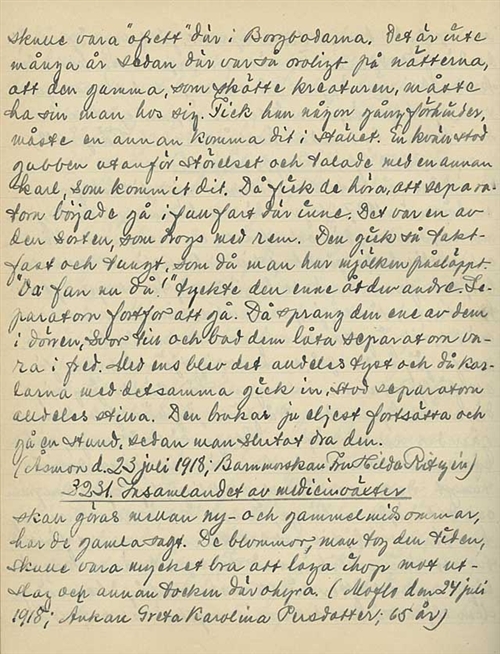 skulle vara "ofrett" där i Borgbodarna. Det är inte
många år sedan där var så oroligt på nätterna,
att den gamma, som skötte kreaturen, måste
ha sin man hos sig. Fick han någon gång förhinder,
måste en annan komma dit i stället. En kväll stod
gubben utanför störelset och talade med en annan
karl, som kommit dit. Då fick de höra, att separa-
torn började gå i full fart där inne. Det var en av
den sorten, som drogs med rem. Den gick så takt-
fast och tungt, som då man har mjölken påsläppt.
"Va fan nu då!" tyckte den ene åt den andre. Se-
paratorn fortfor att gå. Då sprang den ene av dem
i dörren, svor till och bad dem låta separatorn va-
ra i fred. Med ens blev det alldeles tyst och då kar-
larna med detsamma gick in, stod separatorn
alldeles stilla. Den brukar ju eljest fortsätta och
gå en stund, sedan man slutat dra den.
(Åsmon d. 23 juli 1918; Barnmorskan Fru Hilda Ritzén)
3231. Insamlandet av medicinväxter
skall göras mellan ny- och gammelmidsommar,
har de gamla sagt. De blommor, man tog den tiden,
skulle vara mycket bra att lägga ihop mot ut-
slag och annan tocken där ohyra. (Moflo den 24 juli
1918; Änkan Greta Karolina Persdotter; 65 år)